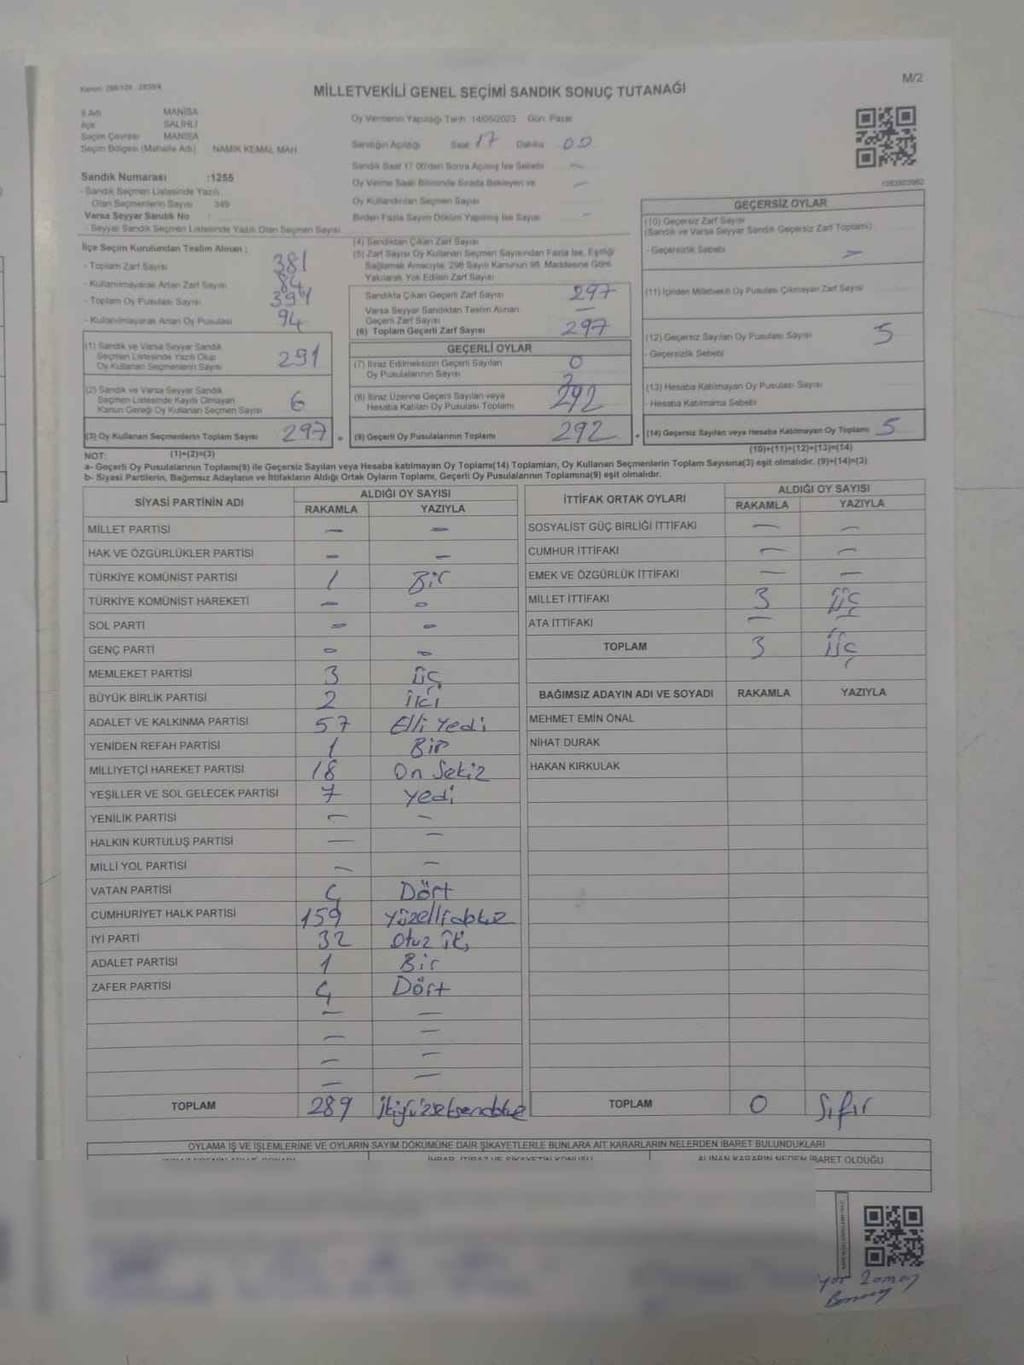 M/2
MİLLETVEKİLİ GENEL SEÇİMİ SANDIK SONUÇ TUTANAĞI
İl Adı MANİSA
İlçe SALİHLİ
Seçim Çevresi MANİSA
Seçim Bölgesi (Mahalle Adı) NAMIK KEMAL MAH
Sandık Numarası :1255
- Sandık Seçmen Listesinde Yazılı
Olan Seçmenlerin Sayısı 349
Varsa Seyyar Sandık No
- Seyyar Sandık Seçmen Listesinde Yazılı Olan Seçmen Sayısı
Oy Vermenin Yapıldığı Tarih 14/05/2023 Gün: Pazar
Sandığın Açıldığı Saat 17 Dakika 00
Sandık Saat 17.00'den Sonra Açılmış İse Sebebi —
Oy Verme Saati Bitiminde Sırada Bekleyen ve —
Oy Kullandırılan Seçmen Sayısı
Birden Fazla Sayım Döküm Yapılmış İse Sayısı –
İlçe Seçim Kurulundan Teslim Alınan ;
- Toplam Zarf Sayısı 381
- Kullanılmayarak Artan Zarf Sayısı 84
- Toplam Oy Pusulası Sayısı 391
- Kullanılmayarak Artan Oy Pusulası 94
(1) Sandık ve Varsa Seyyar Sandık
Seçmen Listesinde Yazılı Olup
Oy Kullanan Seçmenlerin Sayısı 291
(2) Sandık ve Varsa Seyyar Sandık
Seçmen Listesinde Kayıtlı Olmayan
Kanun Gereği Oy Kullanan Seçmen Sayısı 6
(3) Oy Kullanan Seçmenlerin Toplam Sayısı 297
(1)+(2)=(3)
(4) Sandıktan Çıkan Zarf Sayısı
(5) Zarf Sayısı Oy Kullanan Seçmen Sayısından Fazla İse, Eşitliği
Sağlamak Amacıyla, 298 Sayılı Kanunun 98. Maddesine Göre
Yakılarak Yok Edilen Zarf Sayısı
Sandıkta Çıkan Geçerli Zarf Sayısı 297
Varsa Seyyar Sandıktan Teslim Alınan
Geçerli Zarf Sayısı —
(6) Toplam Geçerli Zarf Sayısı 297
GEÇERLİ OYLAR
(7) İtiraz Edilmeksizin Geçerli Sayılan
Oy Pusulalarının Sayısı 0
(8) İtiraz Üzerine Geçerli Sayılan veya
Hesaba Katılan Oy Pusulası Toplamı 292
(9) Geçerli Oy Pusulalarının Toplamı 292
GEÇERSİZ OYLAR
(10) Geçersiz Zarf Sayısı
(Sandık ve Varsa Seyyar Sandık Geçersiz Zarf Toplamı)
- Geçersizlik Sebebi
(11) İçinden Milletvekili Oy Pusulası Çıkmayan Zarf Sayısı
(12) Geçersiz Sayılan Oy Pusulası Sayısı 5
- Geçersizlik Sebebi
(13) Hesaba Katılmayan Oy Pusulası Sayısı
- Hesaba Katılmama Sebebi
(14) Geçersiz Sayılan veya Hesaba Katılmayan Oy Toplamı 5
(10)+(11)+(12)+(13)=(14)
NOT:
a- Geçerli Oy Pusulalarının Toplamı(9) ile Geçersiz Sayılan veya Hesaba katılmayan Oy Toplamı(14) Toplamları, Oy Kullanan Seçmenlerin Toplam Sayısına(3) eşit olmalıdır. (9)+(14)=(3)
b- Siyasi Partilerin, Bağımsız Adayların ve İttifakların Aldığı Ortak Oyların Toplamı, Geçerli Oy Pusulalarının Toplamına(9) eşit olmalıdır.
SİYASİ PARTİNİN ADI ALDIĞI OY SAYISI
RAKAMLA YAZIYLA
MİLLET PARTİSİ — —
HAK VE ÖZGÜRLÜKLER PARTİSİ — —
TÜRKİYE KOMÜNİST PARTİSİ 1 Bir
TÜRKİYE KOMÜNİST HAREKETİ — —
SOL PARTİ — —
GENÇ PARTİ — —
MEMLEKET PARTİSİ 3 üç
BÜYÜK BİRLİK PARTİSİ 2 iki
ADALET VE KALKINMA PARTİSİ 57 Elli Yedi
YENİDEN REFAH PARTİSİ 1 Bir
MİLLİYETÇİ HAREKET PARTİSİ 18 On Sekiz
YEŞİLLER VE SOL GELECEK PARTİSİ 7 Yedi
YENİLİK PARTİSİ — —
HALKIN KURTULUŞ PARTİSİ — —
MİLLİ YOL PARTİSİ — —
VATAN PARTİSİ 4 Dört
CUMHURİYET HALK PARTİSİ 159 Yüzellidokuz
İYİ PARTİ 32 Otuz iki
ADALET PARTİSİ 1 Bir
ZAFER PARTİSİ 4 Dört
— —
— —
— —
— —
TOPLAM 289 İkiyüzseksendokuz
İTTİFAK ORTAK OYLARI ALDIĞI OY SAYISI
RAKAMLA YAZIYLA
SOSYALİST GÜÇ BİRLİĞİ İTTİFAKI — —
CUMHUR İTTİFAKI — —
EMEK VE ÖZGÜRLÜK İTTİFAKI — —
MİLLET İTTİFAKI 3 üç
ATA İTTİFAKI — —
TOPLAM 3 üç
BAĞIMSIZ ADAYIN ADI VE SOYADI RAKAMLA YAZIYLA
MEHMET EMİN ÖNAL
NİHAT DURAK
HAKAN KIRKULAK
TOPLAM 0 Sıfır
OYLAMA İŞ VE İŞLEMLERİNE VE OYLARIN SAYIM DÖKÜMÜNE DAİR ŞİKAYETLERLE BUNLARA AİT KARARLARIN NELERDEN İBARET BULUNDUKLARI
İHBAR, İTİRAZ VE ŞİKAYETİN KONUSU ALINAN KARARIN NEDEN İBARET OLDUĞU